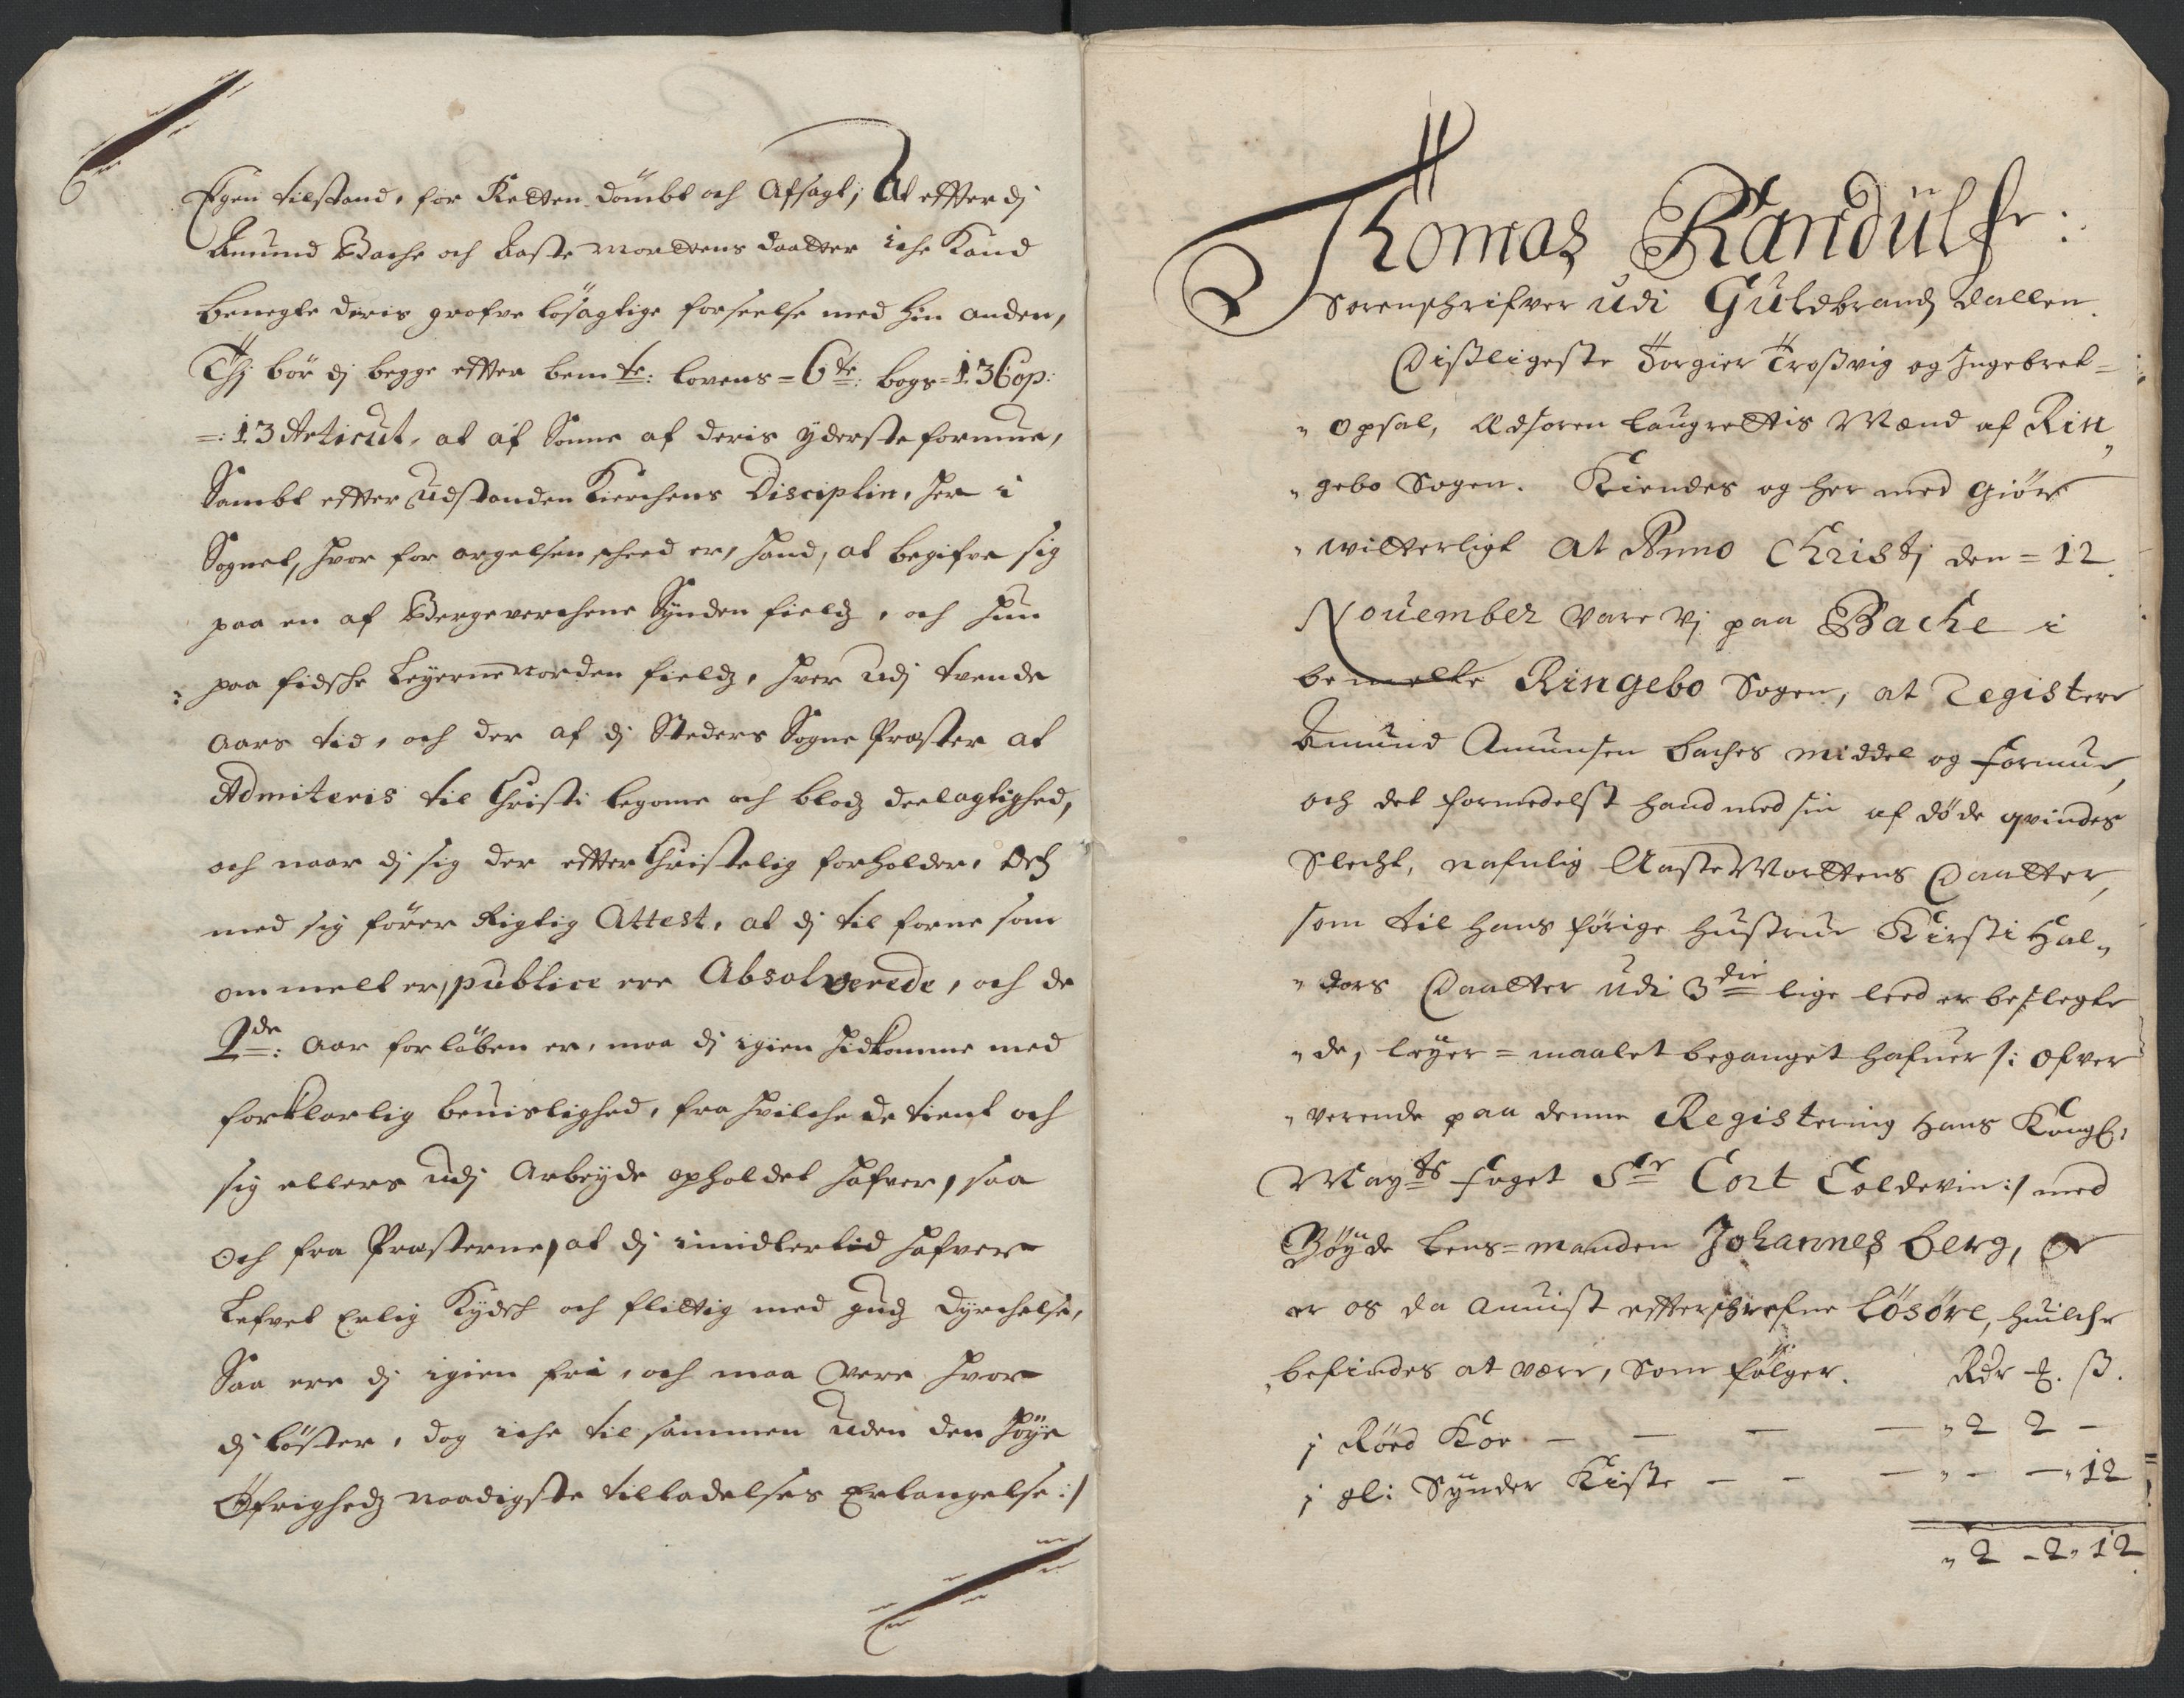 Egen tilstand, for Retten dömbt och Afsagt; At effter dj
Amund Bache och Aaste Mortens daatter iche Kand
benegte deris grofve lösagtige forseelse med hin anden,
Thj bör dj begge effter bemte: lovens = 6te: bogs = 13 Cap:
=: 13 Articul, at af Sonne af deris yderste formue,
Sambt effter udstanden Kierchens Disciplin, her i
Sognet, hvor for argelsen scheed er, hand, at begifve sig
paa en af Bergverchene Synden fields, och hun
paa fidsche Leyerne norden fields, hver udj tvende
Aars tid, och der af dj Steders Sogne Præster at
Admiteris til Christi legome och blods deelagtighed,
och naar dj sig der effter Christelig forholder, Och
med sig fører Rigtig Attest, at dj til forne som
ommelt er, publice ere Absolverede, och de
2de: Aar forløben er, maa dj igien hidkomme med
forklarlig beviislighed, fra hvilche de tient och
sig ellers udj Arbeyde opholdet hafver, saa
och fra Præsterne, at dj imidlertid hafver
Lefvet Erlig Kydsk och flittig med guds dyrchelse,
Saa ere dj igien fri, och maa være hvor
dj løster, dog iche til sammen uden den höye
Öfrigheds naadigste tilladelses Erlangelse :/
Thomas Randulf:
Sorenschrifver udi Guldbrands dallen.
Dissligeste Torgier Trossvig og Ingebret=
opsal, Edsoren Laugrettis Mænd af Rin
gebo Sogen. Kiendes og her med giør
witterligt At Anno Christj den = 12.
November vare Vj paa Bache i
bemelte Ringebo Sogen, at Registere
Amund Amundsen Baches middel og formue,
och det formedelst hand med sin af døde qvindes
Slecht, nafnlig Aaste Mortens Daatter,
som til hans förige hustrue Kirsti Hal„
„dors Daatter udi 3die lige leed er beslegte
„de, leyer = maalet beganget hafuer /: ofver
„verende paa denne Registering Hans Kongl:
Mayts foget Sr Cort Coldevin :/ med
Böyde Lens = manden Johannes Berg, Er
er os da anvist effterschrefne Løsøre, huilche
befindes at være, Som følger. Rdr . ß.
1 Röed Koe — — — — „ 2 2 –
1 gl: Synder Kiste — — — „ – – „ 12
„ 2 – 2 „ 12